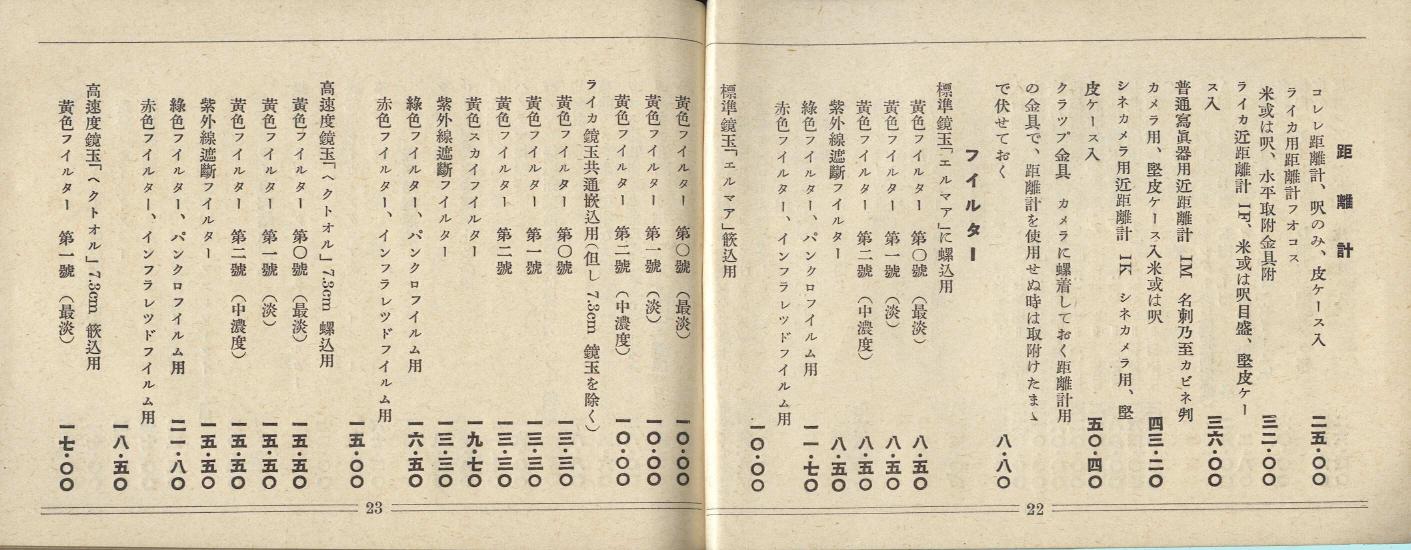 距離計
コレレ距離計、呎のみ、皮ケース入 二五・〇〇
ライカ用距離計フオコス
米或は呎、水平取附金具附 三二・〇〇
ライカ近距離計 IF、米或は呎目盛、堅皮ケー
ス入 三六・〇〇
普通寫眞器用近距離計 IM 名刺乃至カビネ判
カメラ用、堅皮ケース入米或は呎 四三・二〇
シネカメラ用近距離計 IK シネカメラ用、堅
皮ケース入 五〇・四〇
クラツプ金具 カメラに螺着しておく距離計用
の金具で、距離計を使用せぬ時は取附けたまゝ
で伏せておく 八・八〇
フイルター
標準鏡玉「エルマア」に螺込用
黃色フイルター 第〇號 (最淡) 八・五〇
黃色フイルター 第一號 (淡) 八・五〇
黃色フイルター 第二號 (中濃度) 八・五〇
紫外線遮斷フイルター 八・五〇
綠色フイルター、パンクロフイルム用 一一・七〇
赤色フイルター、インフラレツドフイルム用
一〇・〇〇
標準鏡玉「エルマア」篏込用
22
黃色フイルター 第〇號 (最淡) 一〇・〇〇
黃色フイルター 第一號 (淡) 一〇・〇〇
黃色フイルター 第二號 (中濃度) 一〇・〇〇
ライカ鏡玉共通嵌込用(但し 7.3cm 鏡玉を除く)
黃色フイルター 第〇號 一三・三〇
黃色フイルター 第一號 一三・三〇
黃色フイルター 第二號 一三・三〇
黃色スカイフイルター 一九・七〇
紫外線遮斷フイルター 一三・三〇
綠色フイルター、パンクロフイルム用 一六・五〇
赤色フイルター、インフラレツドフイルム用
一五・〇〇
高速度鏡玉「ヘクトオル」7.3cm 螺込用
黃色フイルター 第〇號 (最淡) 一五・五〇
黃色フイルター 第一號 (淡) 一五・五〇
黃色フイルター 第二號 (中濃度) 一五・五〇
紫外線遮斷フイルター 一五・五〇
綠色フイルター、パンクロフイルム用 二一・八〇
赤色フイルター、インフラレツドフイルム用
一八・五〇
高速度鏡玉「ヘクトオル」7.3cm 篏込用
黃色フイルター 第一號 (最淡) 一七・〇〇
23